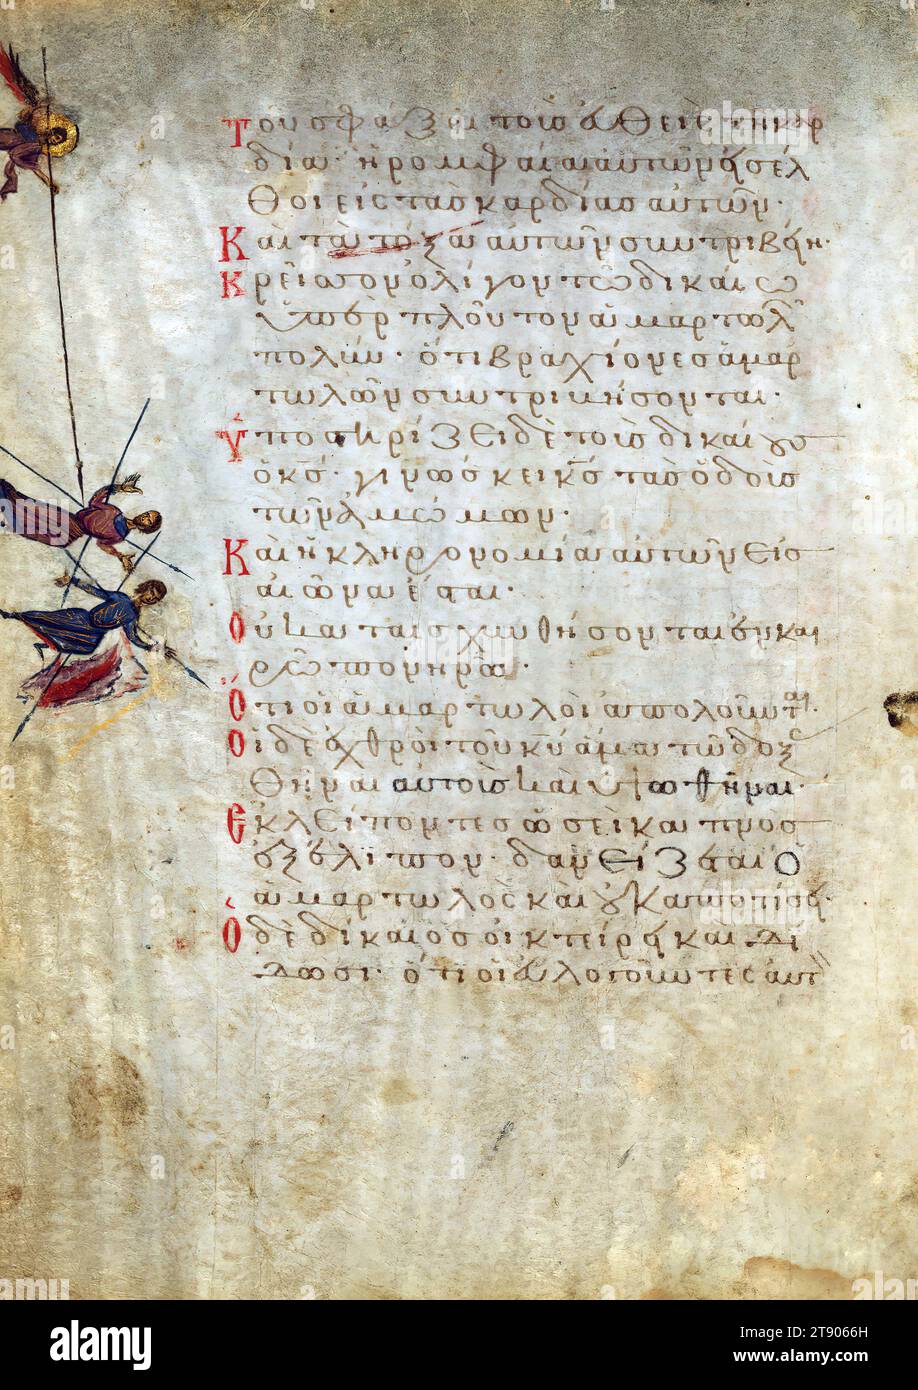 Τοῦ σφάξαι τοὺς εὐθεῖς τῇ καρ
δία· ἡ ρομφαία αὐτῶν εἰσέλ
θοι εἰς τὰς καρδίας αὐτῶν·
Καὶ τὰ τόξα αὐτῶν συντριβείη·
Κρεῖσσον ὀλίγον τῶ δικαίω
ὑπὲρ πλοῦτον ἁμαρτωλῶν
πολύν· ὅτι βραχίονες ἁμαρ
τωλῶν συντριβήσονται·
Ὑποστηρίζει δὲ τοὺς δικαίους
ὁ κς· γινώσκει κς τὰς ὁδοὺς
τῶν ἀμώμων·
Καὶ ἡ κληρονομία αὐτῶν εἰς
αἰῶνα ἔσται·
Οὐ καταισχυνθήσονται ἐν και
ρῶ πονηρῶ·
Ὅτι οἱ ἁμαρτωλοὶ ἀπολοῦνται·
Οἱ δὲ ἐχθροὶ τοῦ κυ ἅμα τῶ δοξασ
θῆναι αὐτοὺς καὶ ὑψωθῆναι·
Ἐκλείποντες ὡσεὶ καπνὸς
ἐξέλιπον· δανείζεται ὁ
ἁμαρτωλὸς καὶ οὐκ ἀποτίσει·
Ὁ δὲ δίκαιος οἰκτείρει καὶ δί
δωσι· ὅτι οἱ εὐλογοῦντες αὐτ
alamy
Image ID: 2T9066H
www.alamy.com